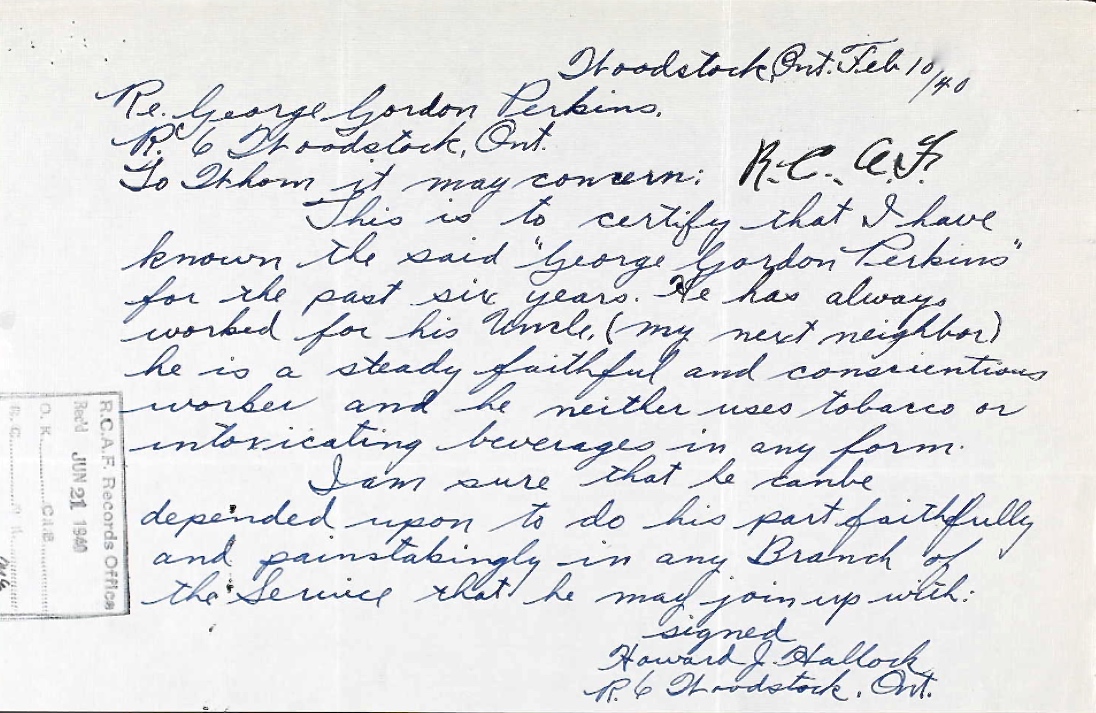 Woodstock, Ont. Feb 10/40
Re. George Gordon Perkins.
R. 6 Woodstock, Ont.
To Whom it may concern:
R.C.A.F.
This is to certify that I have
known the said "George Gordon Perkins"
for the past six years. He has always
worked for his Uncle, (my next neighbor)
he is a steady faithful and conscientious
worker and he neither uses tobacco or
intoxicating beverages in any form.
I am sure that he can be
depended upon to do his part faithfully
and painstakingly in any Branch of
the Service that he may join up with:
signed
Howard J. Hallock
R. 6 Woodstock, Ont.
R.C.A.F. Records Office
Rec'd JUN 21 1940
O. K.